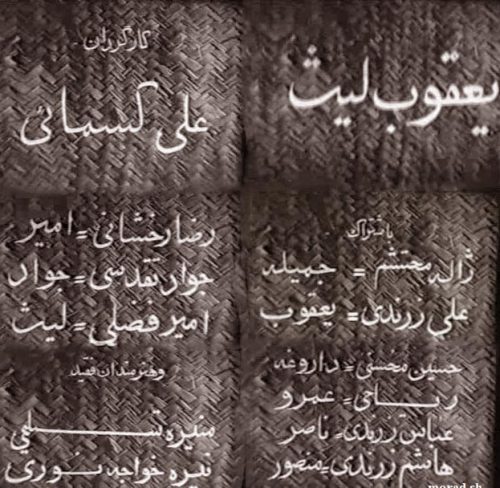 یعقوب لیث
کارگردان
علی کسمائی
باشتراک
ژاله محتشم = جمیله
علی زرندی = یعقوب
رضا رخشانی = امیر
جواد تقدسی = جواد
امیر فضلی = لیث
حسین محسنی = داروغه
ریاحی = عمرو
عباس زرندی = ناصر
هاشم زرندی = منصور
وهنرمندان فقید
منیره تسلیمی
نیره خواجه نوری
morad.sh